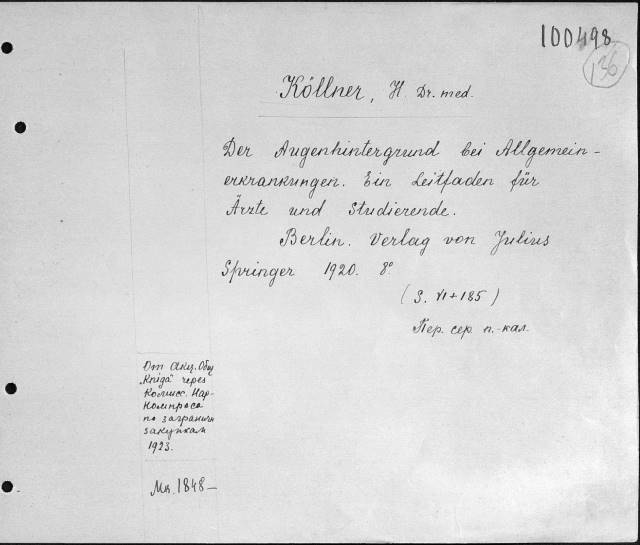 100498
136
Köllner, H. Dr. med.
Der Augenhintergrund bei Allgemein-
erkrankungen. Ein Leitfaden für
Ärzte und Studierende.
Berlin. Verlag von Julius
Springer 1920. 8°.
(S. VI+185)
Пер. сер. п.-кал.
От Акц. Общ
„Kniga" через
Комисс. Нар-
Компроса
по загранич
закупкам
1923.
Мк. 1848—